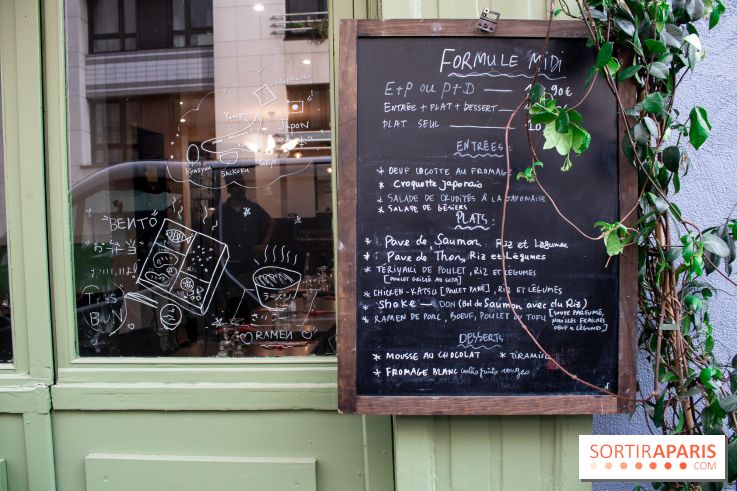 FORMULE MIDI
E+P OU P+D 90€
ENTRÉE + PLAT + DESSERT
PLAT SEUL
ENTRÉES:
* OEUF COCOTTE AU FROMAGE
* CROQUETTE JAPONAIS
* SALADE DE CRUDITÉS À LA JAPONAISE
* SALADE DE GÉSIERS
PLATS:
* Pave de Saumon, Riz et Légumes
* Pave de Thon, Riz et Légumes
* TERIYAKI DE POULET, RIZ ET LÉGUMES
[POULET GRILLÉ AU SOJA]
* CHICKEN-KATSU [POULET PANÉ], RIZ ET LÉGUMES
Shake — DON (Bol de Saumon avec du Riz)
* RAMEN DE PORC, BOEUF, POULET OU TOFU [SOUPE PARFUMÉE,
NOUILLES FRAÎCHES
OEUF & LÉGUMES]
DESSERTS
* MOUSSE AU CHOCOLAT * TIRAMISU
* FROMAGE BLANC coulis fruits rouges
Hokkaido
JAPON
Tokyo
SHIKOKU
BENTÔ
お弁当
RAMEN
ラーメン
SORTIRAPARIS
.COM